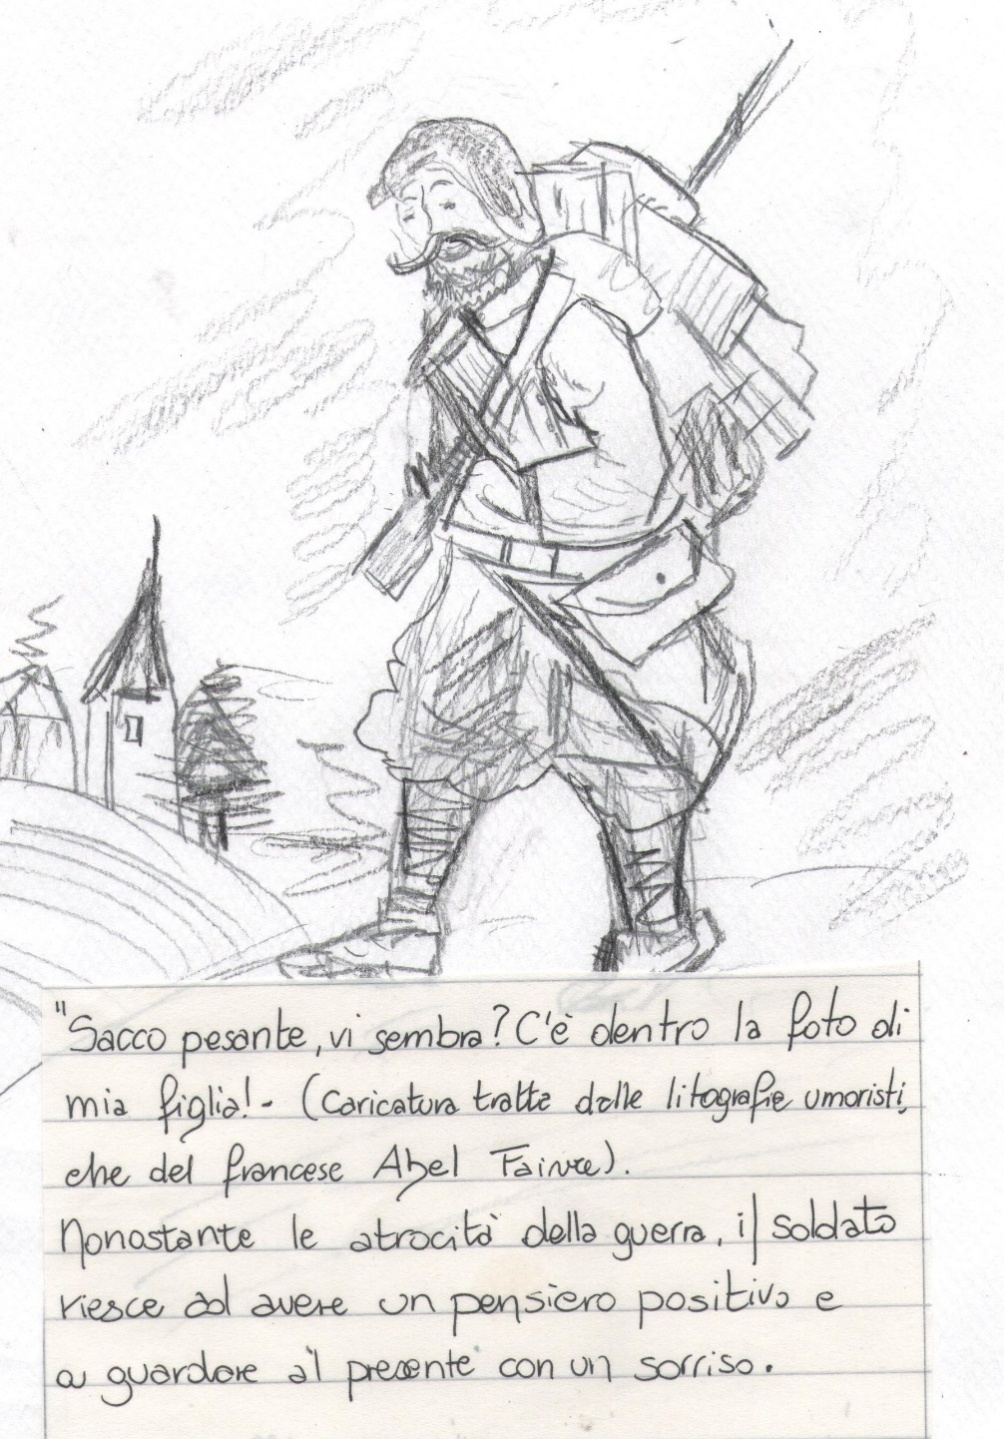 "Sacco pesante, vi sembra? C'è dentro la foto di
mia figlia! - (Caricatura tratta dalle litografie umoristi,
che del francese Abel Faivre).
Nonostante le atrocità della guerra, il soldato
riesce ad avere un pensiero positivo e
a guardare al presente con un sorriso.